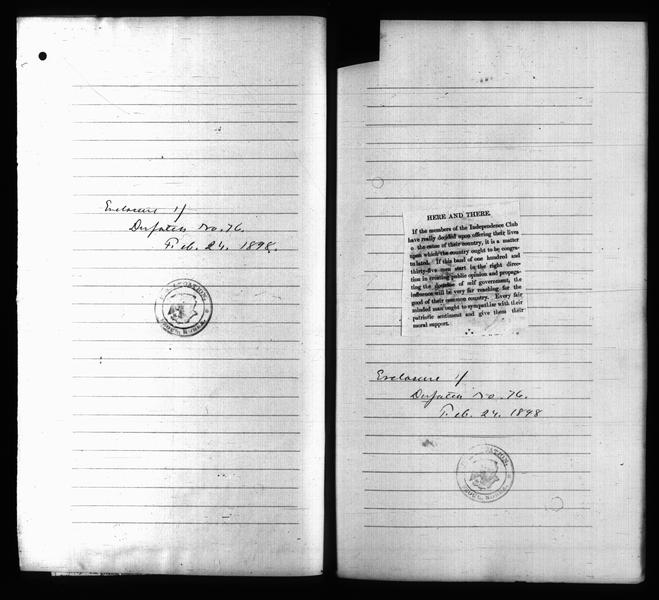 Enclosure 1/
Dispatch No. 76.
Feb. 24. 1898.
LEGATION,
SEOUL, KOREA.
HERE AND THERE.
If the members of the Independence Club
have really decided upon offering their lives
o. the cause of their country, it is a matter
upon which the country ought to be congra-
tulated. If this band of one hundred and
thirty-five men start in the right direc-
tion in creating public opinion and propaga-
ting the doctrine of self government, the
influence will be very far reaching for the
good of their common country. Every fair
minded man ought to sympathise with their
patriotic sentiment and give them their
moral support.
Enclosure 1/
Dispatch No. 76.
Feb. 24. 1898
SEOUL, KOREA.